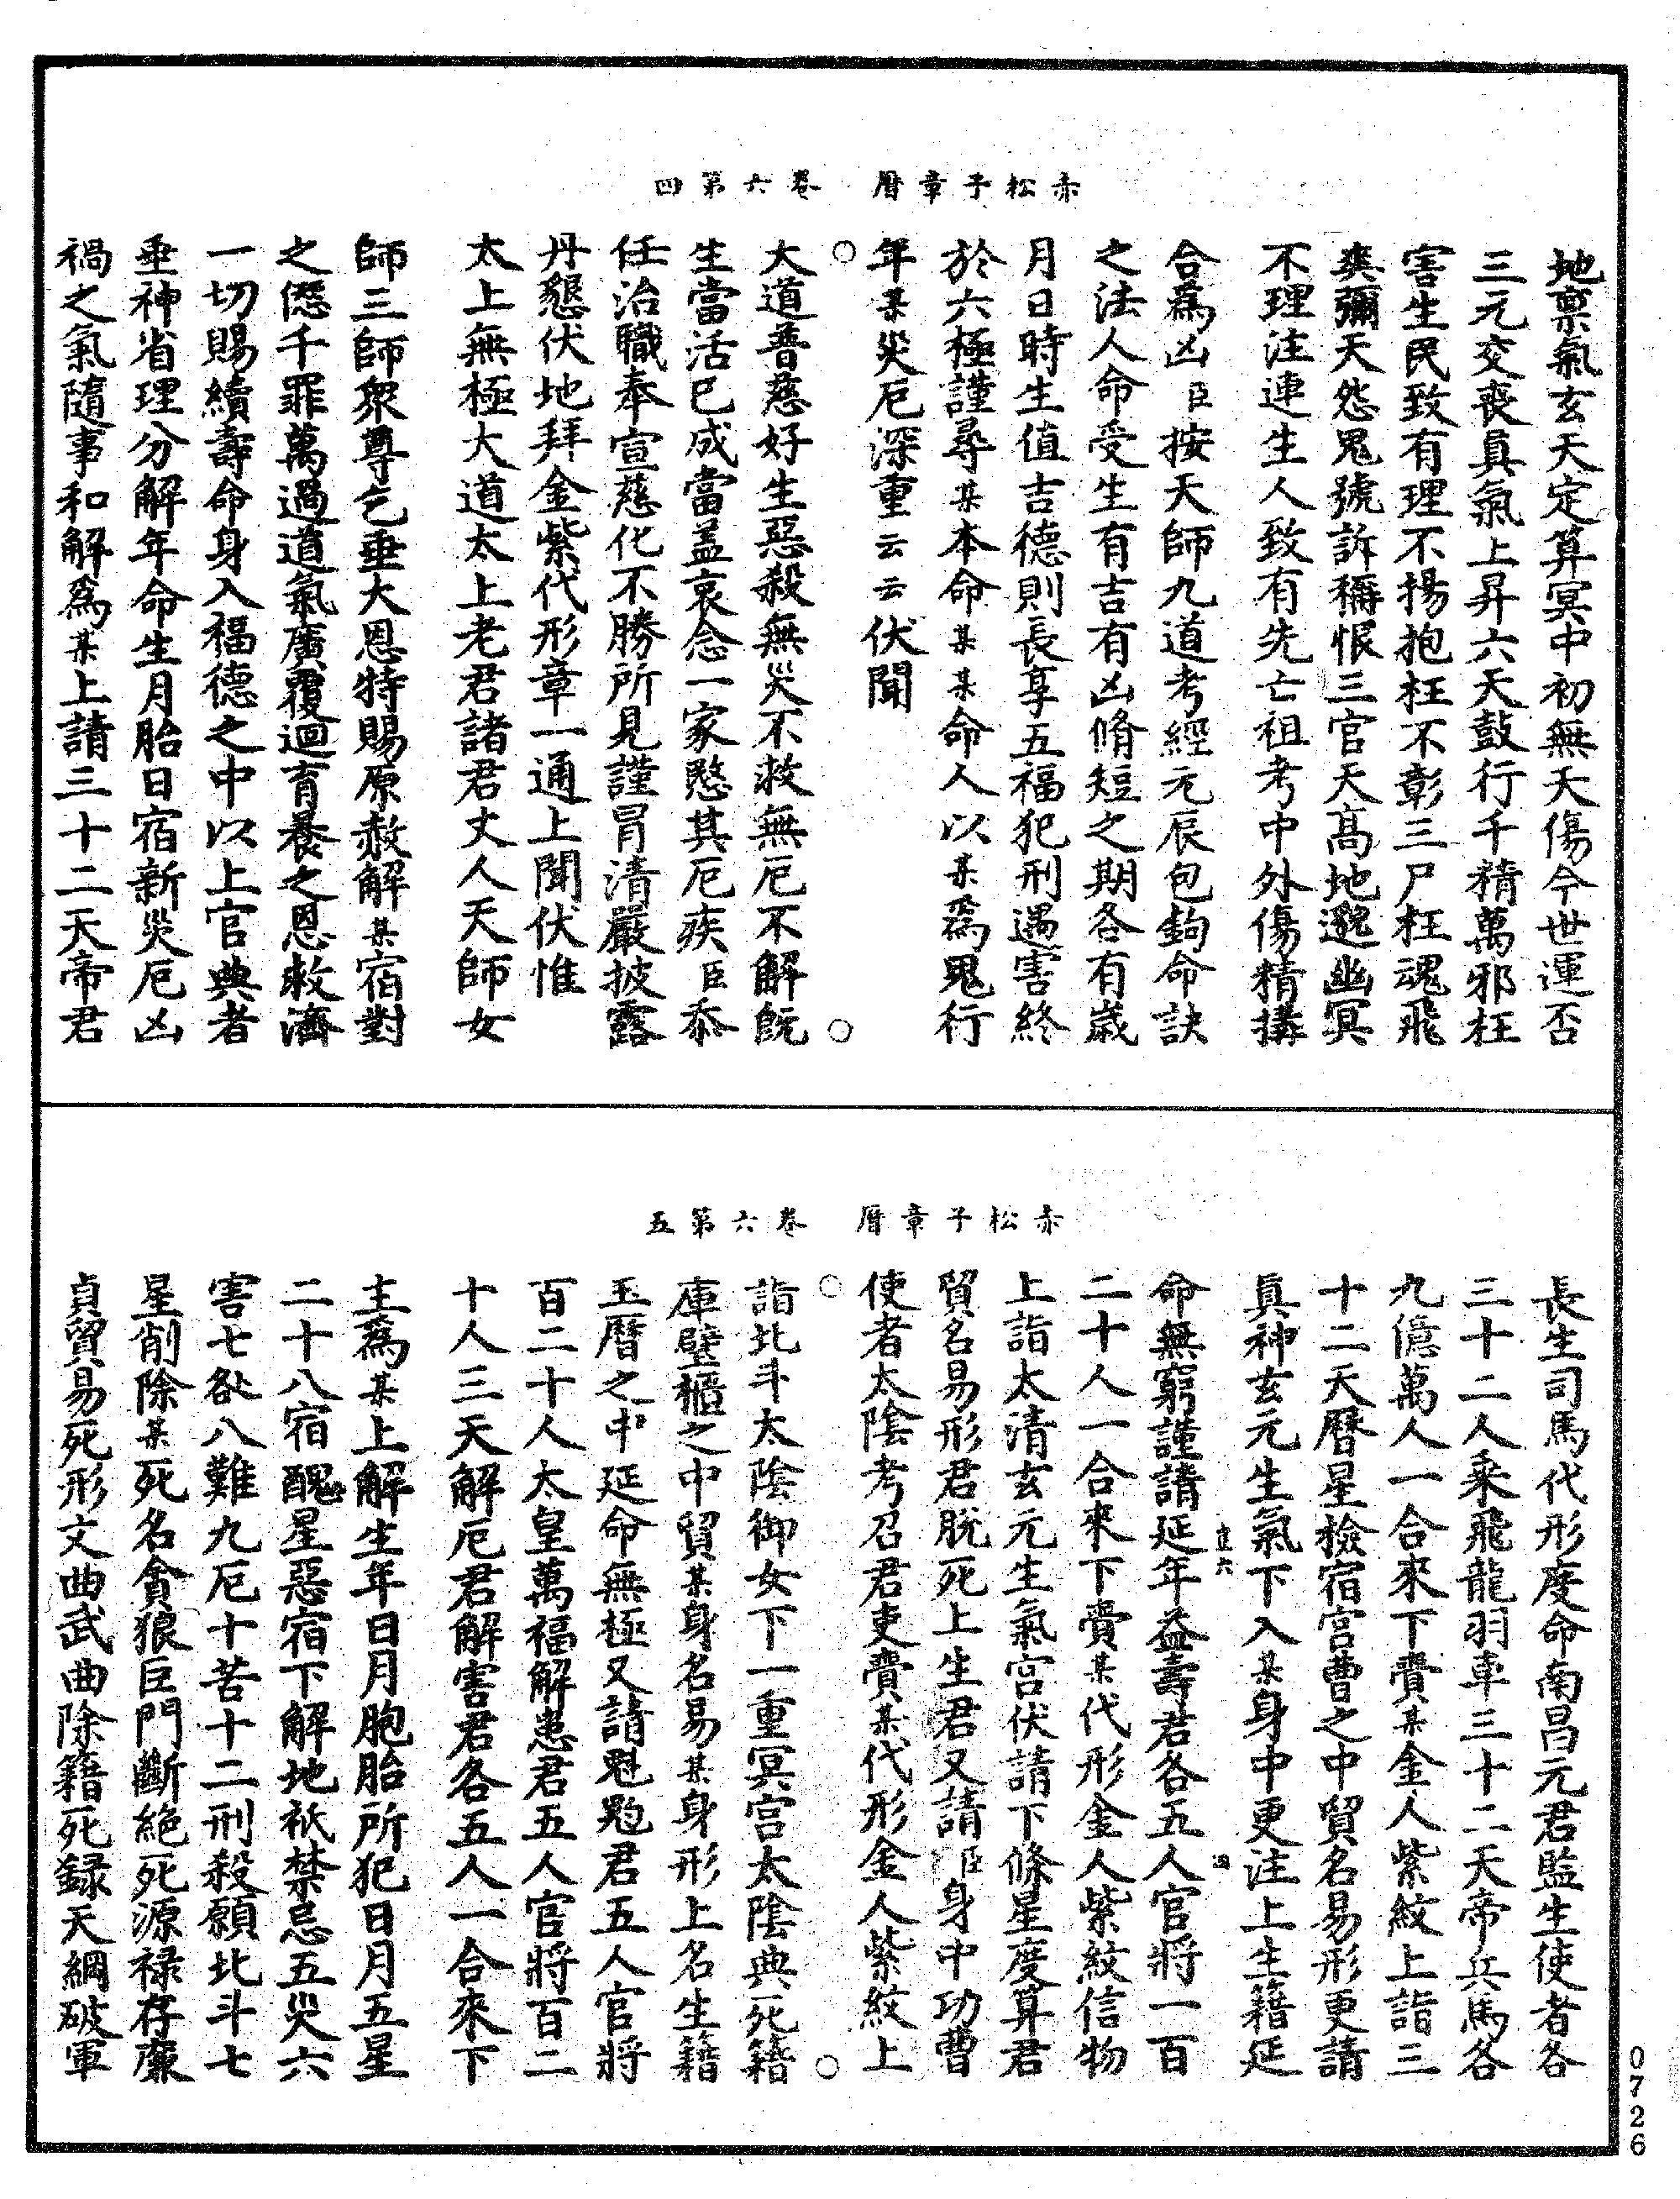 赤松子章曆　卷六第四
地稟氣玄天定算冥中初無夭傷今世運否
三元交喪真氣上昇六天鼓行千精萬邪枉
害生民致有理不揚抱枉不彰三尸枉魂飛
爽彌天怨鬼號訴稱恨三官天高地邈幽冥
不理注連生人致有先亡祖考中外傷精搆
合爲凶臣按天師九道考經元辰包鉤命訣
之法人命受生有吉有凶脩短之期各有歲
月日時生值吉德則長享五福犯刑遇害終
於六極謹尋某本命某某命人以某爲鬼行
年某災厄深重云云伏聞
大道普慈好生惡殺無災不救無厄不解旣
生當活已成當蓋哀念一家愍其厄疾臣忝
任治職奉宣慈化不勝所見謹冒清嚴披露
丹懇伏地拜金紫代形章一通上聞伏惟
太上無極大道太上老君諸君丈人天師女
師三師衆尊乞垂大恩特賜原赦解某宿對
之𠎝千罪萬過道氣廣覆迴育養之恩救濟
一切賜續壽命身入福德之中以上官典者
垂神省理分解年命生月胎日宿新災厄凶
禍之氣隨事和解爲某上請三十二天帝君
赤松子章曆　卷六第五
長生司馬代形度命南昌元君監生使者各
三十二人乘飛龍羽車三十二天帝兵馬各
九億萬人一合來下賷某金人紫紋上詣三
十二天曆星檢宿宫曹之中貿名易形更請
真神玄元生氣下入某身中更注上生籍延
命無窮謹請延年益壽君各五人官將一百
二十人一合來下賷某代形金人紫紋信物
上詣太清玄元生氣宫伏請下條星度算君
貿名易形君脫死上生君又請臣身中功曹
使者太陰考召君吏賷某代形金人紫紋上
詣北斗太陰御女下一重冥宫太陰典死籍
庫壁櫃之中貿某身名易某身形上名生籍
玉曆之中延命無極又請魁𩲃君五人官將
百二十人太皇萬福解患君五人官將百二
十人三天解厄君解害君各五人一合來下
主爲某上解生年日月胞胎所犯日月五星
二十八宿醜星惡宿下解地祇禁忌五災六
害七𣧑八難九厄十苦十二刑殺願北斗七
星削除某死名貪狼巨門斷絶死源禄存廉
貞貿易死形文曲武曲除籍死録天綱破軍
0726